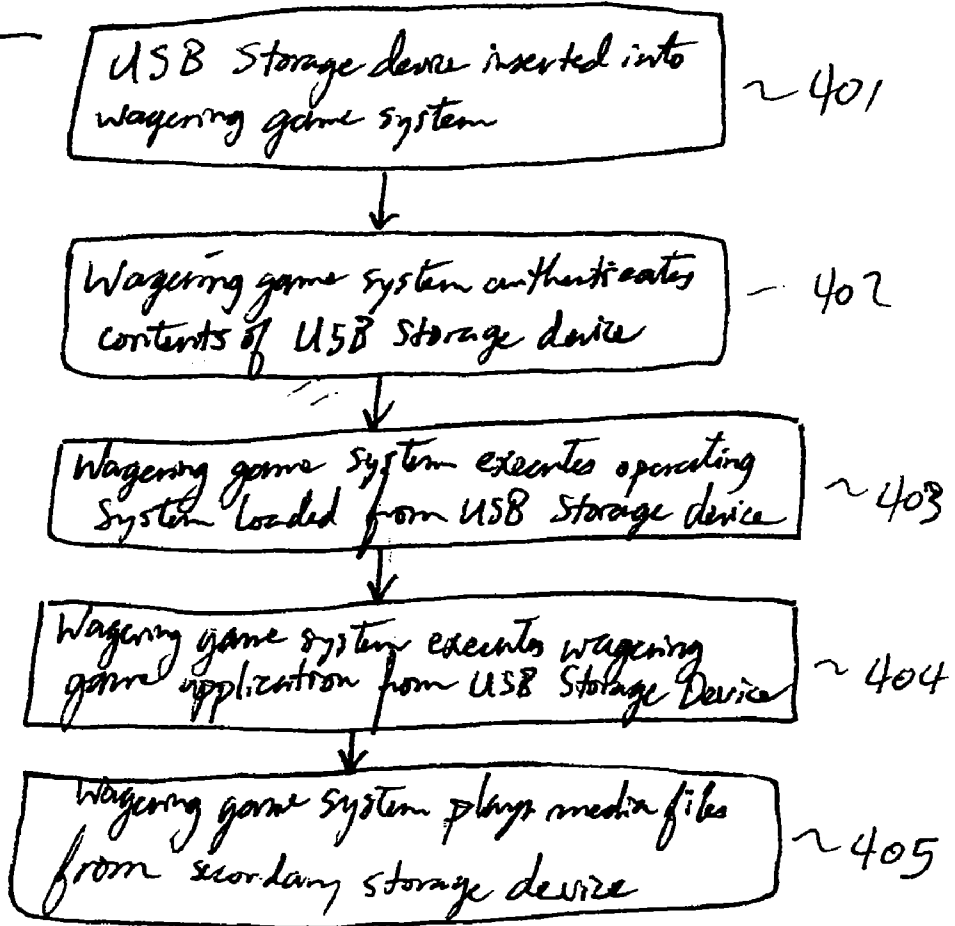 USB Storage device inserted into
wagering game system
~401
Wagering game system authenticates
contents of USB Storage device
- 402
Wagering game system executes operating
System loaded from USB Storage device
~403
Wagering game system executes wagering
game application from USB Storage Device
~404
Wagering game system plays media files
from secondary storage device
~405